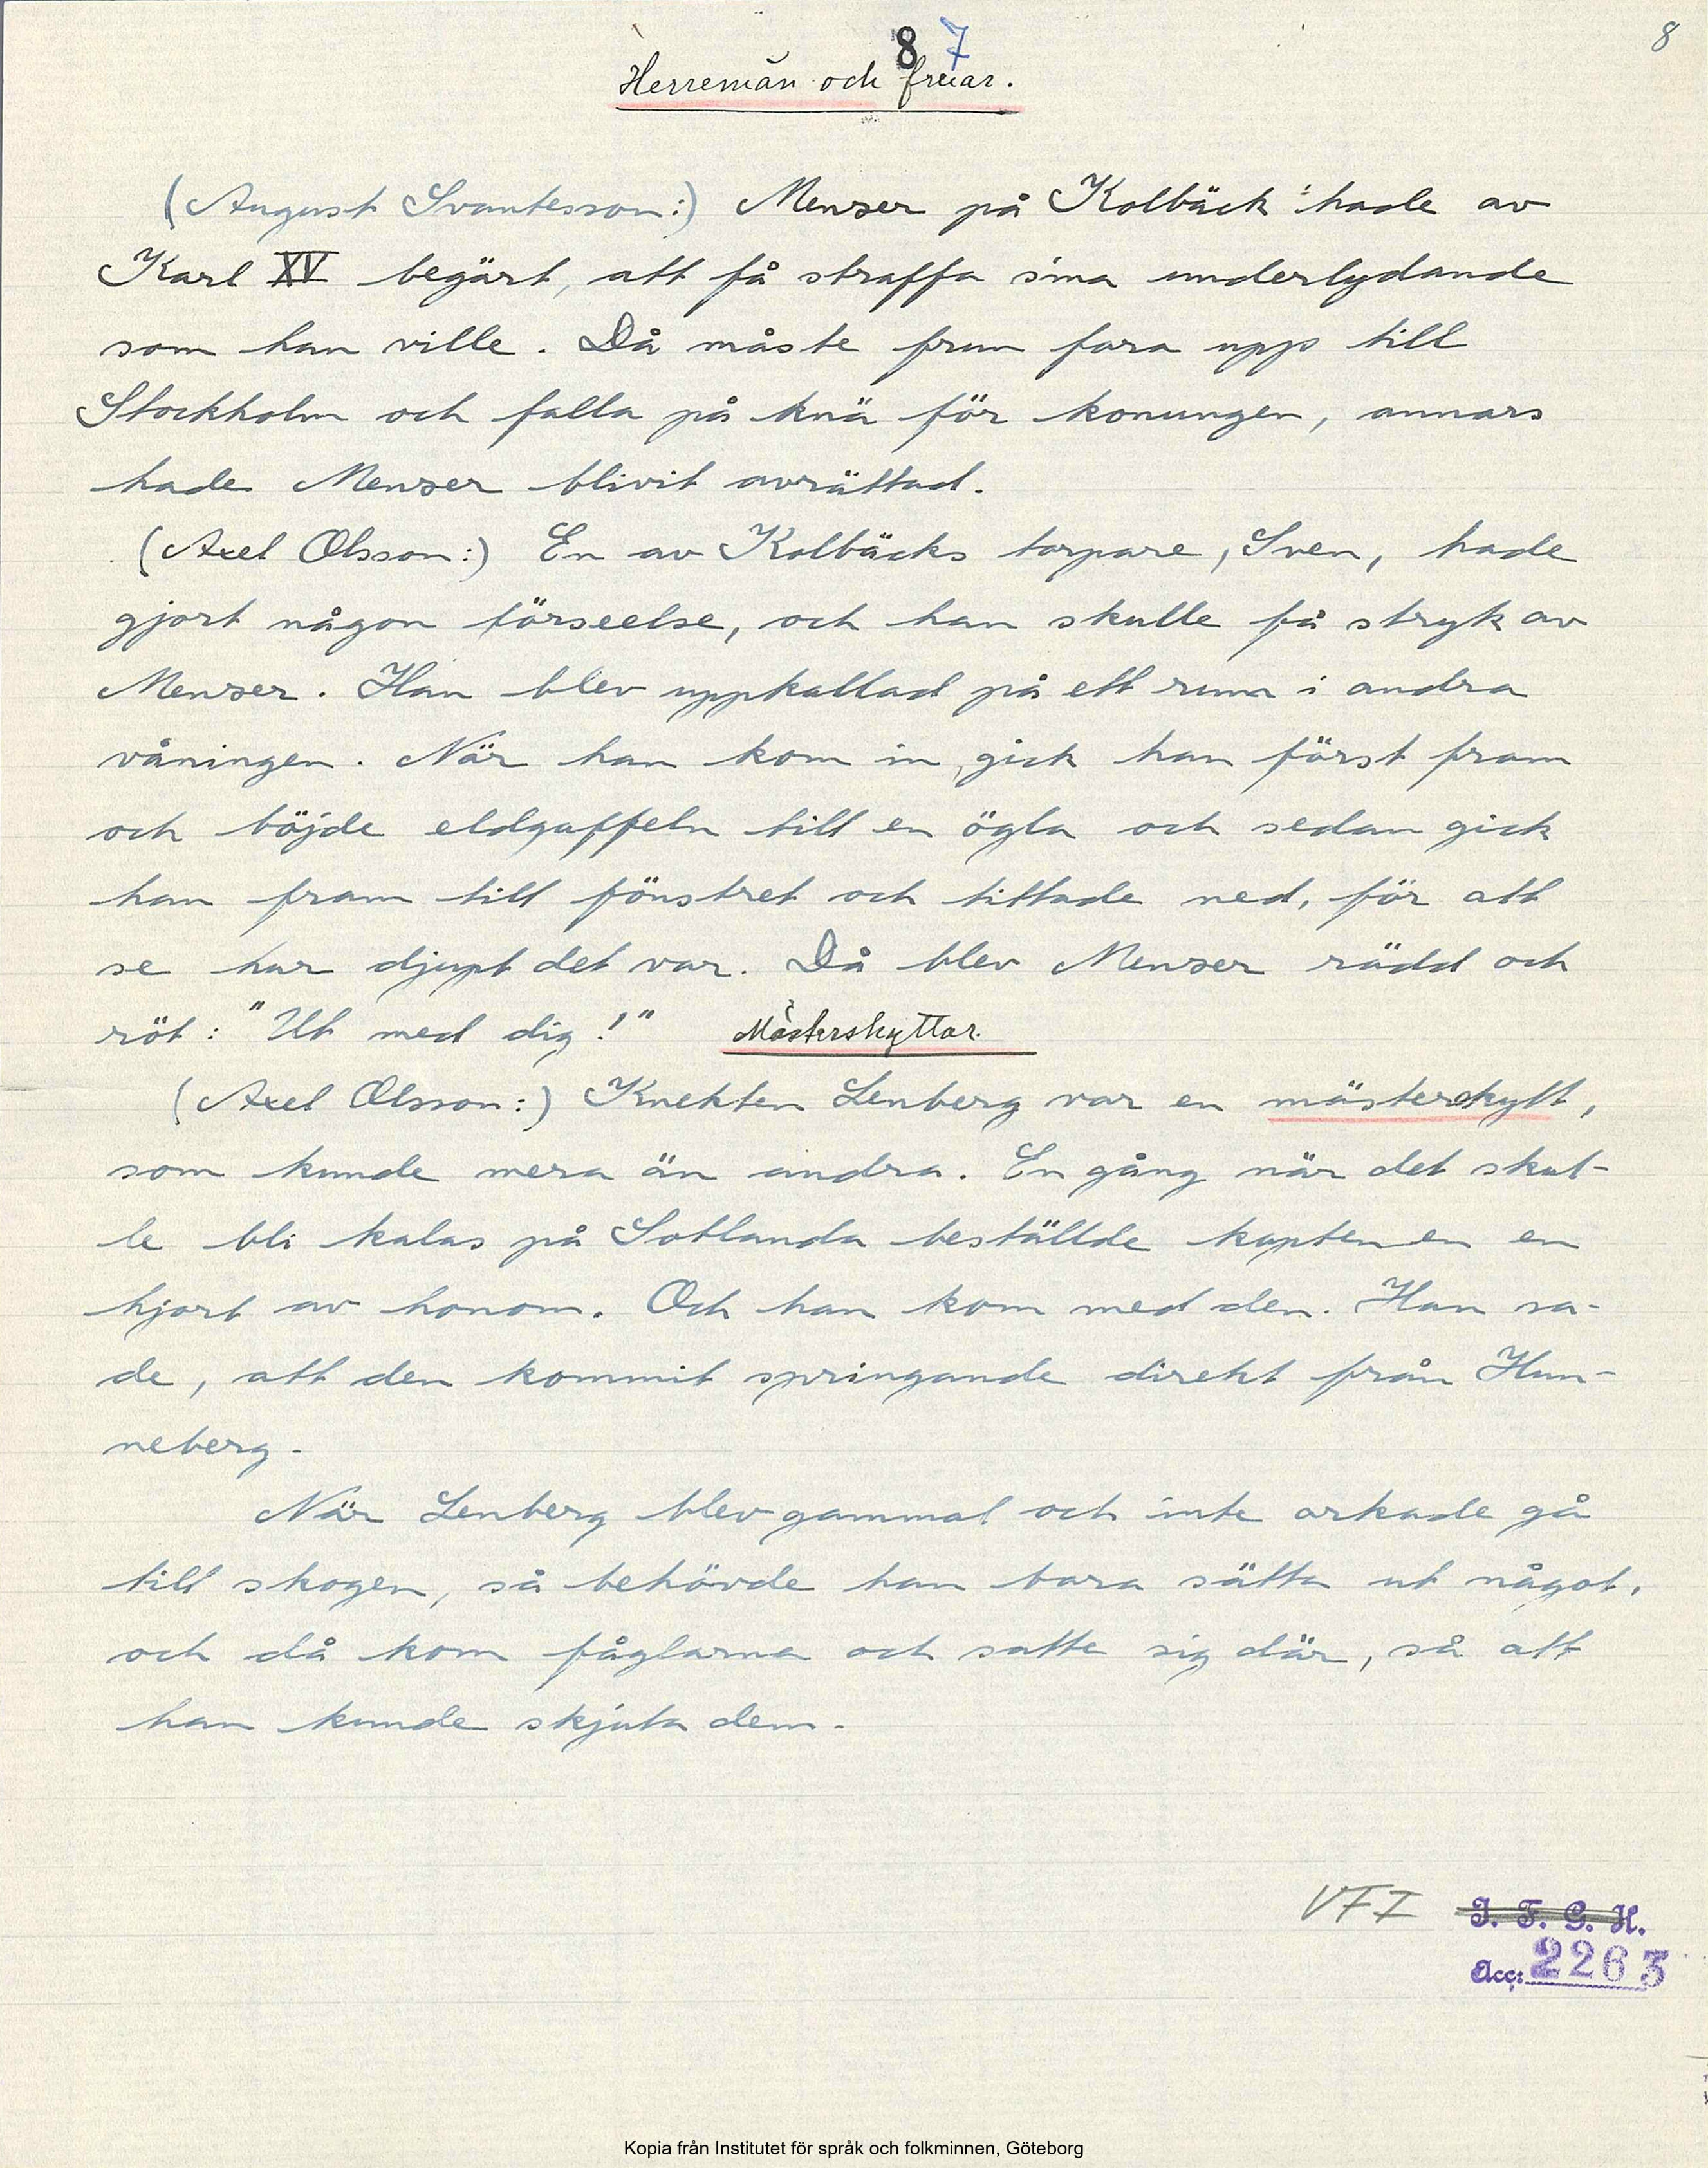 8
8 7
Herremän och fruar.
(August Svantesson:) Menser på Kolbäck hade av
Karl XV begärt, att få straffa sina underlydande
som han ville. Då måste frun fara upp till
Stockholm och falla på knä för konungen, annars
hade Menser blivit avrättad.
(Axel Olsson:) En av Kolbäcks torpare, Sven, hade
gjort någon förseelse, och han skulle få stryk av
Menser. Han blev uppkallad på ett rum i andra
våningen. När han kom in, gick han först fram
och böjde eldgaffeln till en ögla och sedan gick
han fram till fönstret och tittade ned, för att
se hur djupt det var. Då blev Menser rädd och
röt: "Ut med dig!" Mästerskyttar.
(Axel Olsson:) Knekten Lenberg var en mästerskytt,
som kunde mera än andra. En gång när det skul-
le bli kalas på Sotlanda beställde kaptenen en
hjort av honom. Och han kom med den. Han sa-
de, att den kommit springande direkt från Hun-
neberg.
När Lenberg blev gammal och inte orkade gå
till skogen, så behövde han bara sätta ut något,
och då kom fåglarna och satte sig där, så att
han kunde skjuta dem.
VFI I. F. G. H.
Acc: 2263
Kopia från Institutet för språk och folkminnen, Göteborg